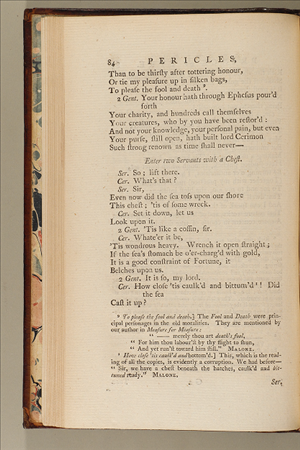 84 PERICLES,
Than to be thirſty after tottering honour,
Or tie my pleaſure up in ſilken bags,
To pleaſe the fool and death ⁸.
2 Gent. Your honour hath through Epheſus pour'd
forth
Your charity, and hundreds call themſelves
Your creatures, who by you have been reſtor'd :
And not your knowledge, your perſonal pain, but even
Your purſe, ſtill open, hath built lord Cerimon
Such ſtrong renown as time ſhall never—
Enter two Servants with a Cheſt.
Ser. So; lift there.
Cer. What's that ?
Ser. Sir,
Even now did the ſea toſs upon our ſhore
This cheſt ; 'tis of ſome wreck.
Cer. Set it down, let us
Look upon it.
2 Gent. 'Tis like a coffin, ſir.
Cer. Whate'er it be,
'Tis wondrous heavy. Wrench it open ſtraight ;
If the ſea's ſtomach be o'er-charg'd with gold,
It is a good conſtraint of Fortune, it
Belches upon us.
2 Gent. It is ſo, my lord.
Cer. How cloſe 'tis caulk'd and bittum'd ⁹! Did
the ſea
Caſt it up ?
⁸ To pleaſe the fool and death.] The Fool and Death were prin-
cipal perſonages in the old moralities. They are mentioned by
our author in Meaſure for Meaſure :
" —— merely thou art death's fool,
" For him thou labour'ſt by thy flight to ſhun,
" And yet run'ſt toward him ſtill." MALONE.
⁹ How cloſe 'tis caulk'd and bottom'd.] This, which is the read-
ing of all the copies, is evidently a corruption. We had before—
" Sir, we have a cheſt beneath the hatches, caulk'd and bit-
tumed ready." MALONE.
Ser.